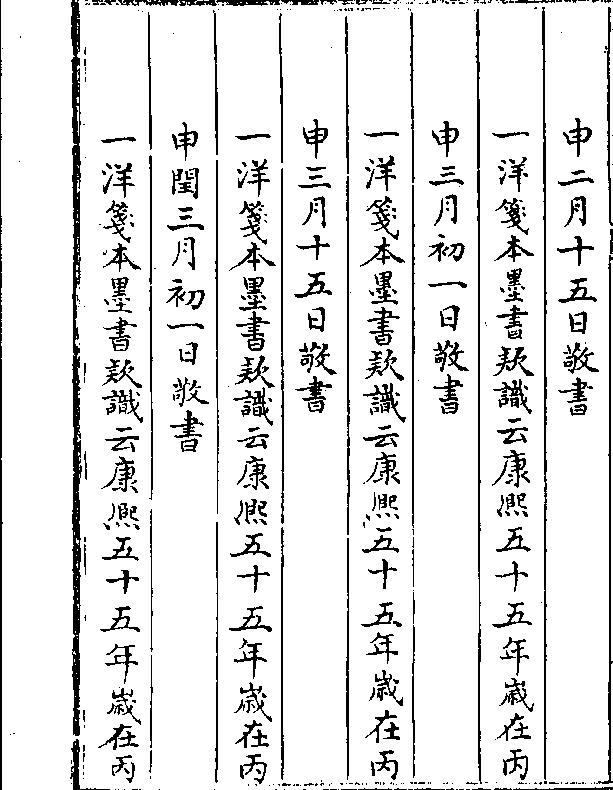 申二月十五日敬書
一洋箋本墨書欵識云康熈五十五年嵗在丙
申三月初一日敬書
一洋箋本墨書欵識云康熈五十五年嵗在丙
申三月十五日敬書
一洋箋本墨書欵識云康熈五十五年嵗在丙
申閏三月初一日敬書
一洋箋本墨書欵識云康熈五十五年嵗在丙